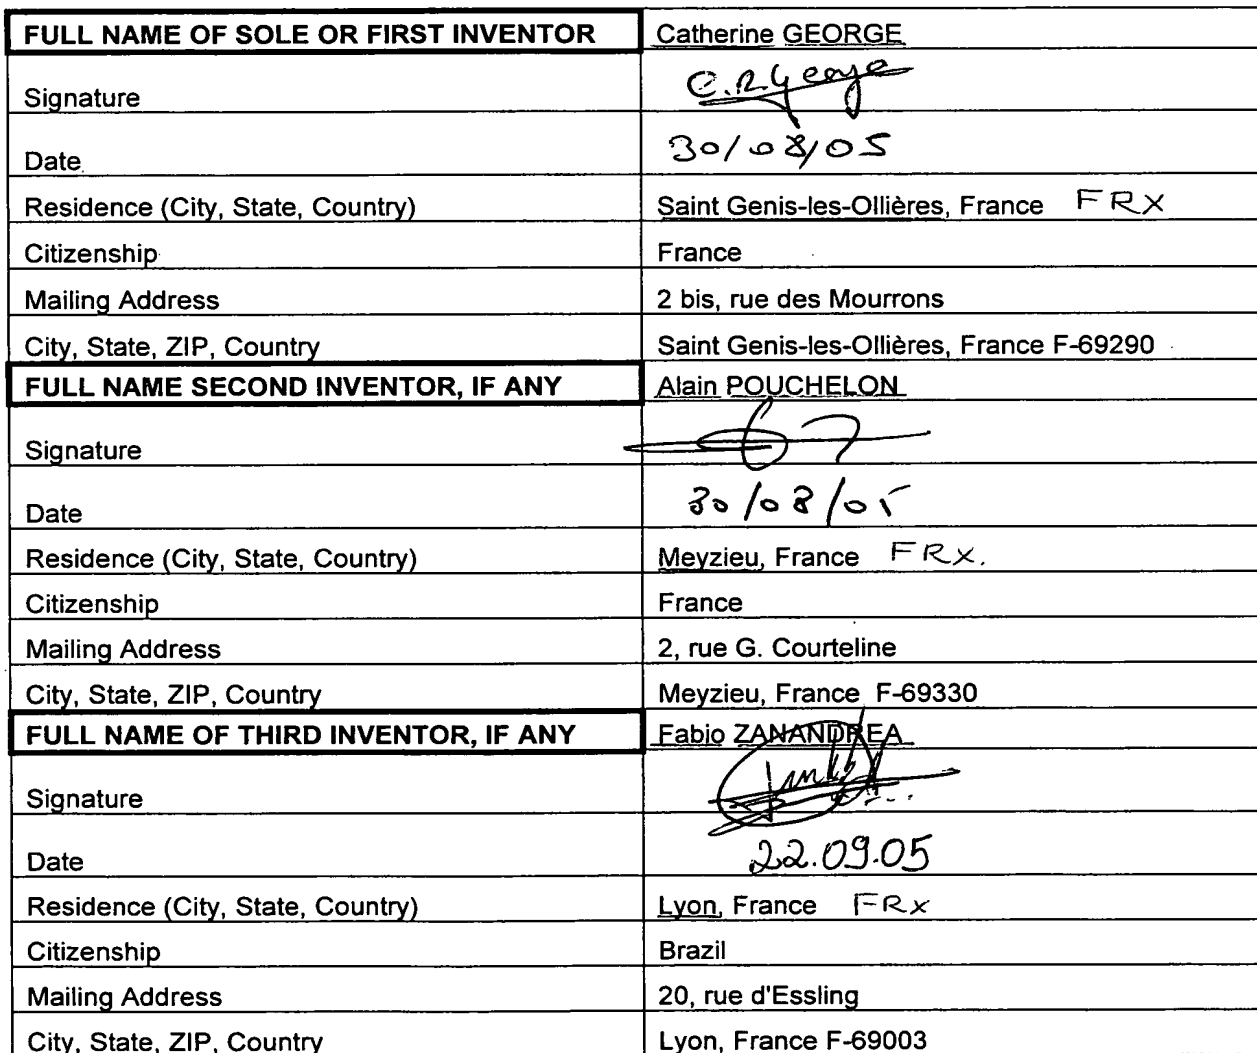 FULL NAME OF SOLE OR FIRST INVENTOR Catherine GEORGE
Signature C.R George
Date 30/08/05
Residence (City, State, Country) Saint Genis-les-Ollières, France FRX
Citizenship France
Mailing Address 2 bis, rue des Mourrons
City, State, ZIP, Country Saint Genis-les-Ollières, France F-69290
FULL NAME SECOND INVENTOR, IF ANY Alain POUCHELON
Signature
Date 30/08/05
Residence (City, State, Country) Meyzieu, France FRX.
Citizenship France
Mailing Address 2, rue G. Courteline
City, State, ZIP, Country Meyzieu, France F-69330
FULL NAME OF THIRD INVENTOR, IF ANY Fabio ZANANDREA
Signature
Date 22.09.05
Residence (City, State, Country) Lyon, France FRX
Citizenship Brazil
Mailing Address 20, rue d'Essling
City, State, ZIP, Country Lyon, France F-69003